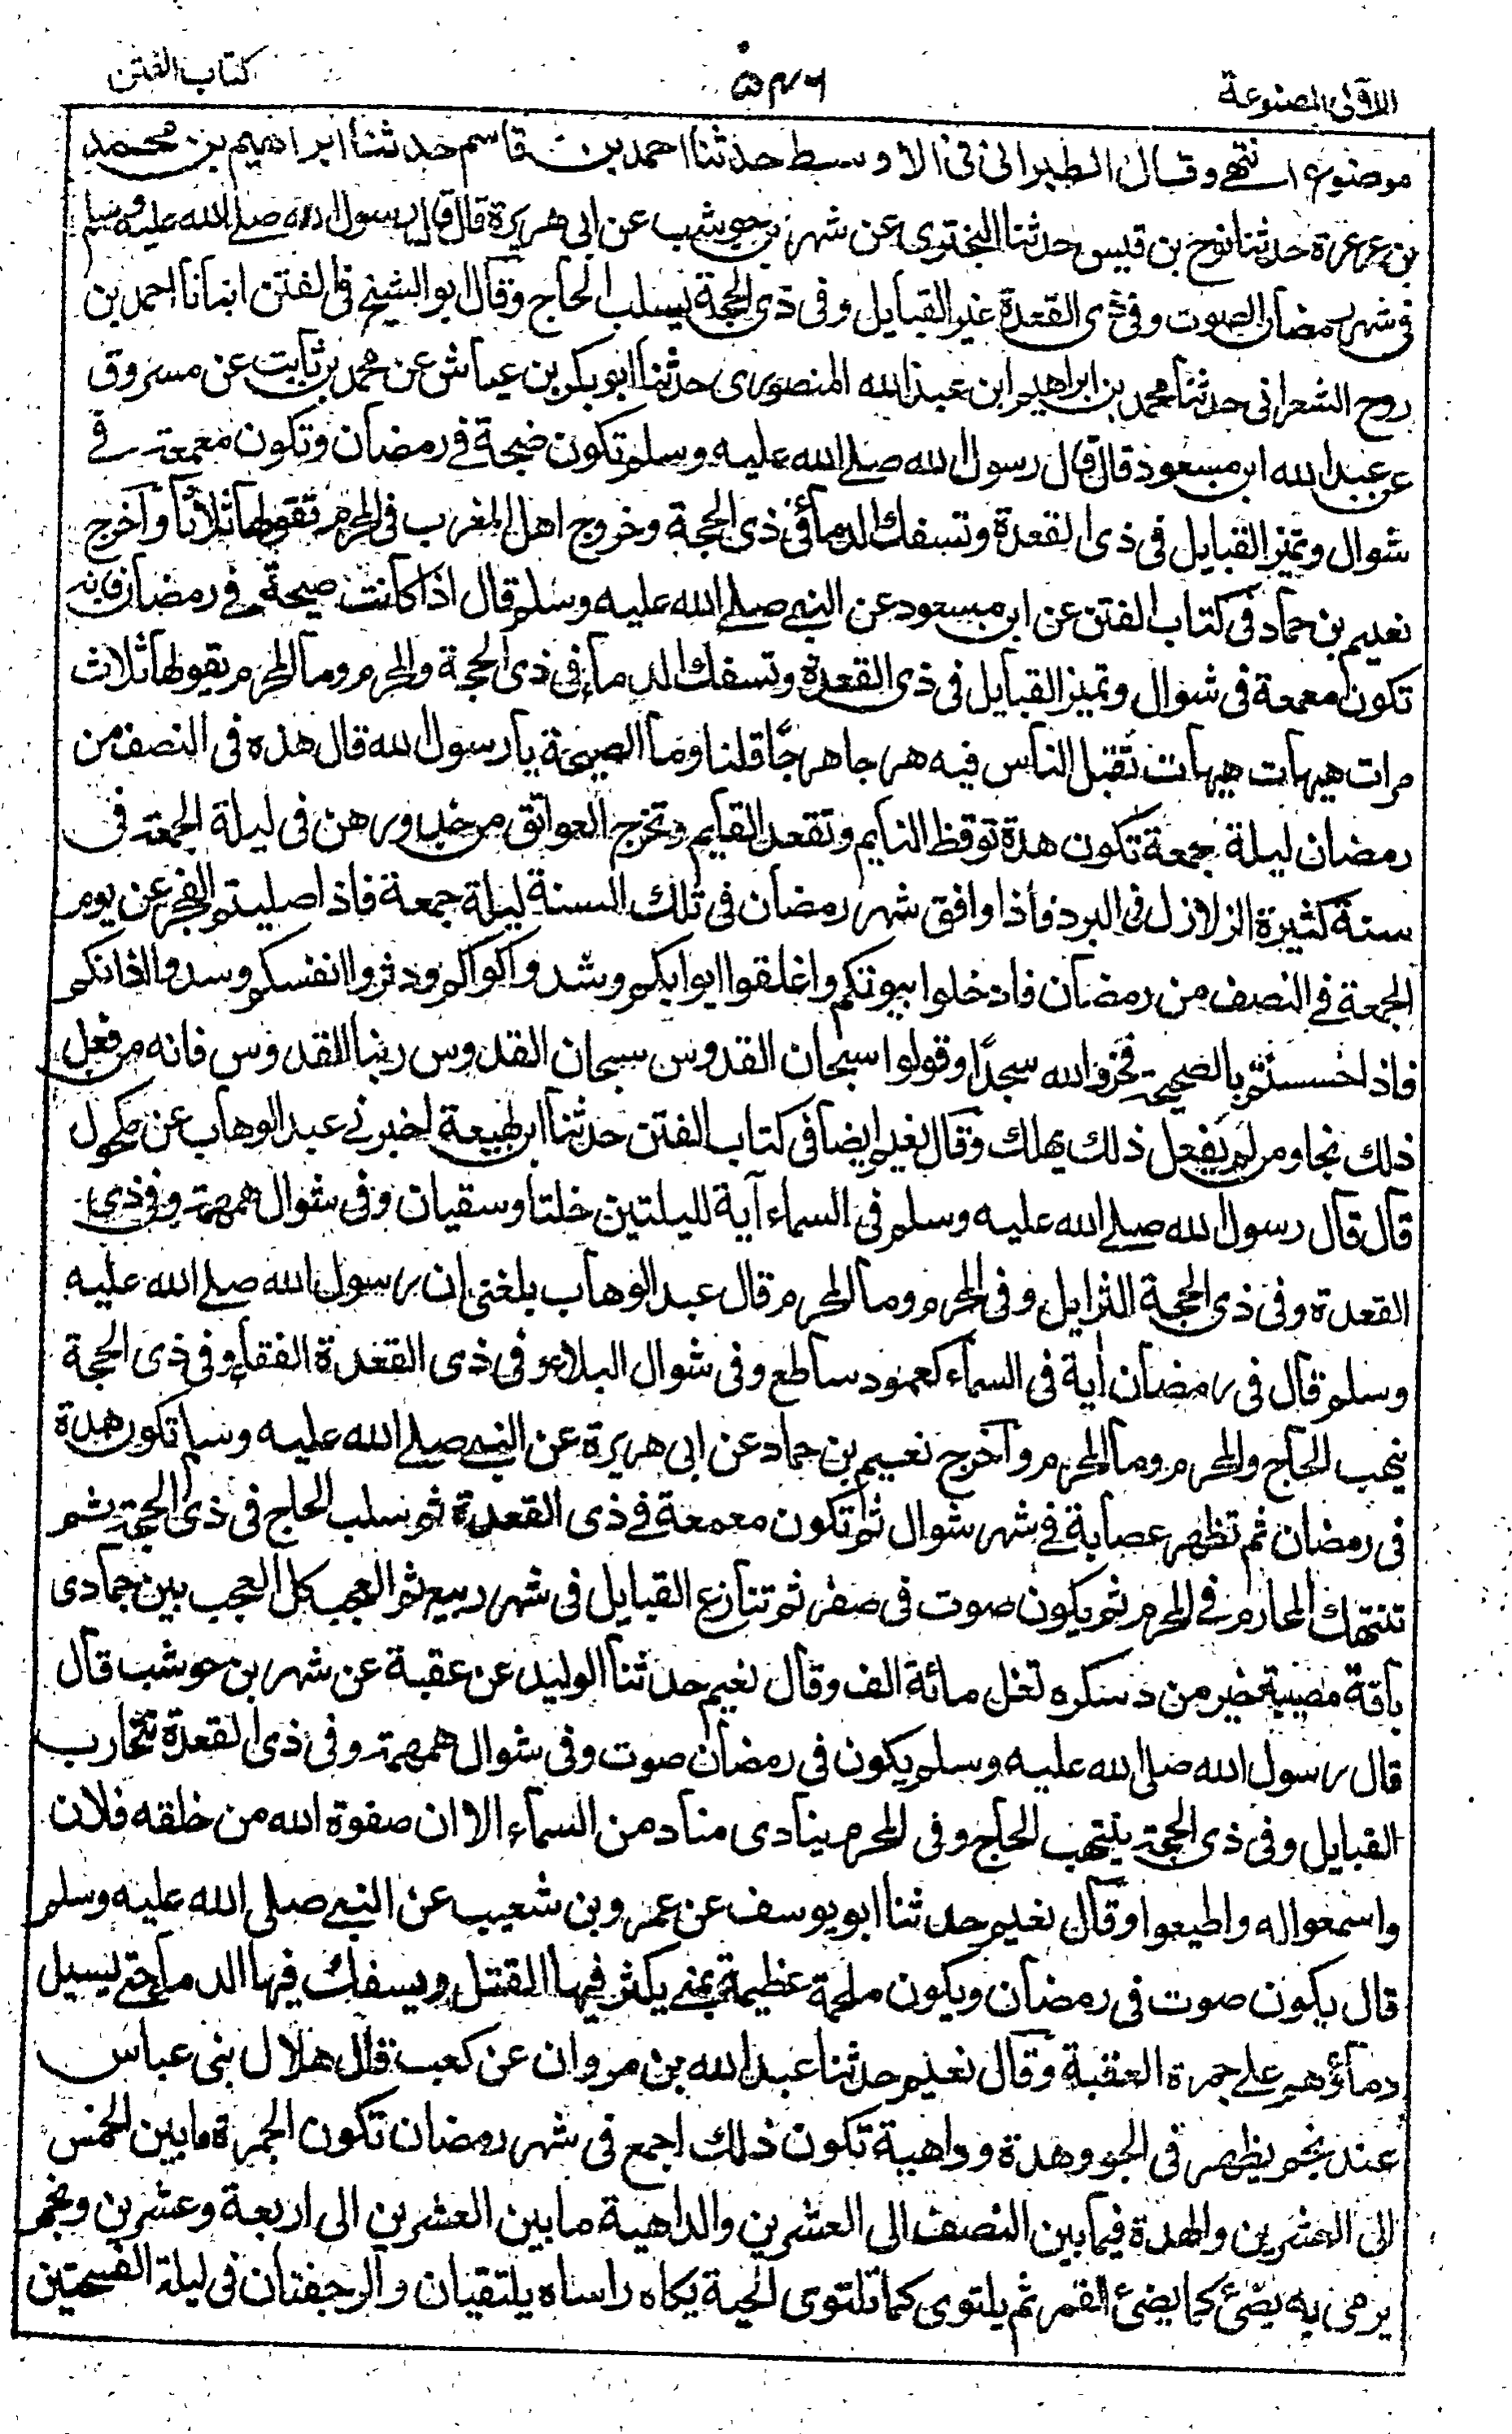 اللآلى المصنوعة
٥٣٦
كتاب الفتن
موضوع انتهى وقال الطبرانى فى الاوسط حدثنا احمد بن قاسم حدثنا ابراهيم بن محمد
بن عرعرة حدثنا نوح بن قيس حدثنا البخترى عن شهر بن حوشب عن ابى هريرة قال قال رسول الله صلى الله عليه وسلم
فى شهر رمضان الصوت وفى ذى القعدة غير القبايل وفى ذى الحجة يسلب الحاج وقال ابو الشيخ فى الفتن انبانا احمد بن
روح الشعرانى حدثنا محمد بن ابراهيم ابن عبد الله المنصورى حدثنا ابو بكر بن عياش عن محمد بن ثابت عن مسروق
عن عبد الله ابن مسعود قال قال رسول الله صلى الله عليه وسلم تكون ضجة فى رمضان وتكون معمعة فى
شوال وتميز القبايل فى ذى القعدة وتسفك الدماء فى ذى الحجة وخروج اهل المغرب فى المحرم تقولها ثلاثا وآخرج
نعيم بن حماد فى كتاب الفتن عن ابن مسعود عن النبى صلى الله عليه وسلم قال اذا كانت صيحة فى رمضان فانه
تكون معمعة فى شوال وتميز القبايل فى ذى القعدة وتسفك الدماء فى ذى الحجة والمحرم وما المحرم يقولها ثلاث
مرات هيهات هيهات تقبل الناس فيه هرجا هرجا قلنا وما الصيحة يا رسول الله قال هذه فى النصف من
رمضان ليلة جمعة تكون هدة توقظ النايم وتقعد القايم وتخرج العواتق من خدورهن فى ليلة الجمعة فى
سنة كثيرة الزلازل فى البرد فاذا وافق شهر رمضان فى تلك السنة ليلة جمعة فاذا صليتم الفجر عن يوم
الجمعة فى النصف من رمضان فادخلوا بيوتكم واغلقوا ابوابكم وشدوا كواكم ودثروا انفسكم وسدوا اذانكم
فاذا احسستم بالصيحة فخروا لله سجدا وقولوا سبحان القدوس سبحان القدوس ربنا القدوس فانه من فعل
ذلك نجا ومن لم يفعل ذلك يهلك وقال نعيم ايضا فى كتاب الفتن حدثنا ابن لهيعة اخبرنى عبد الوهاب عن مكحول
قال قال رسول الله صلى الله عليه وسلم فى السماء آية لليلتين خلتا وسقيان وفى شوال همهمة وفى ذى
القعدة وفى ذى الحجة الترايل وفى المحرم وما المحرم قال عبد الوهاب بلغنى ان رسول الله صلى الله عليه
وسلم قال فى رمضان آية فى السماء كعمود ساطع وفى شوال البلاء وفى ذى القعدة الفقاء وفى ذى الحجة
ينهب الحاج والمحرم وما المحرم وآخرج نعيم بن حماد عن ابى هريرة عن النبى صلى الله عليه وسلم تكون هدة
فى رمضان ثم تظهر عصابة فى شهر شوال ثم تكون معمعة فى ذى القعدة ثم يسلب الحاج فى ذى الحجة ثم
تنتهك المحارم فى المحرم ثم يكون صوت فى صفر ثم تنازع القبايل فى شهر ربيع ثم العجب كل العجب بين جمادى
باقة مضببة خير من دسكره تغل مائة الف وقال نعيم حدثنا الوليد عن عقبة عن شهر بن حوشب قال
قال رسول الله صلى الله عليه وسلم يكون فى رمضان صوت وفى شوال همهمة وفى ذى القعدة تتحارب
القبايل وفى ذى الحجة ينتهب الحاج وفى المحرم ينادى مناد من السماء الا ان صفوة الله من خلقه فلان
واسمعوا له واطيعوا وقال نعيم حدثنا ابو يوسف عن عمرو بن شعيب عن النبى صلى الله عليه وسلم
قال يكون صوت فى رمضان ويكون ملحمة عظيمة بمنى يكثر فيها القتل ويسفك فيها الدماء حتى يسيل
دماؤهم على جمرة العقبة وقال نعيم حدثنا عبد الله بن مروان عن كعب قال هلاك بنى عباس
عند نجم يظهر فى الجو وهدة وواهية تكون ذلك اجمع فى شهر رمضان تكون الحمرة ما بين الخمس
الى العشرين والهدة فيما بين النصف الى العشرين والداهية ما بين العشرين الى اربعة وعشرين ونجم
يرمى به يضئ كما يضئ القمر ثم يلتوى كما تلتوى الحية يكاه راساه يلتقيان والرجفتان فى ليلة الفسحتين